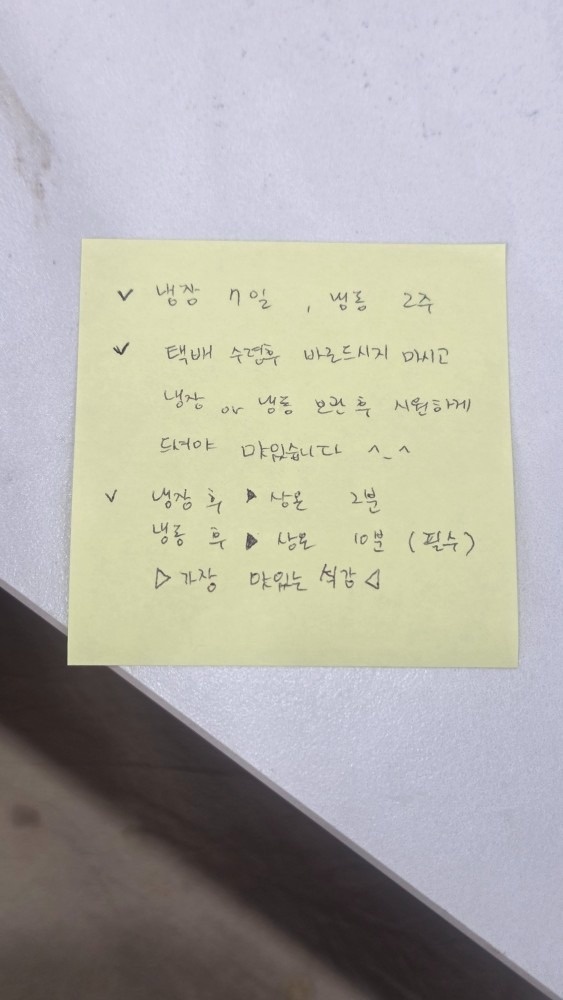 ✓ 냉장 7일 , 냉동 2주
✓ 택배 수령후 바로드시지 마시고
냉장 or 냉동 보관 후 시원하게
드셔야 맛있습니다 ^_^
✓ 냉장 후 ▶ 상온 2분
냉동 후 ▶ 상온 10분 (필수)
▷ 가장 맛있는 식감 ◁